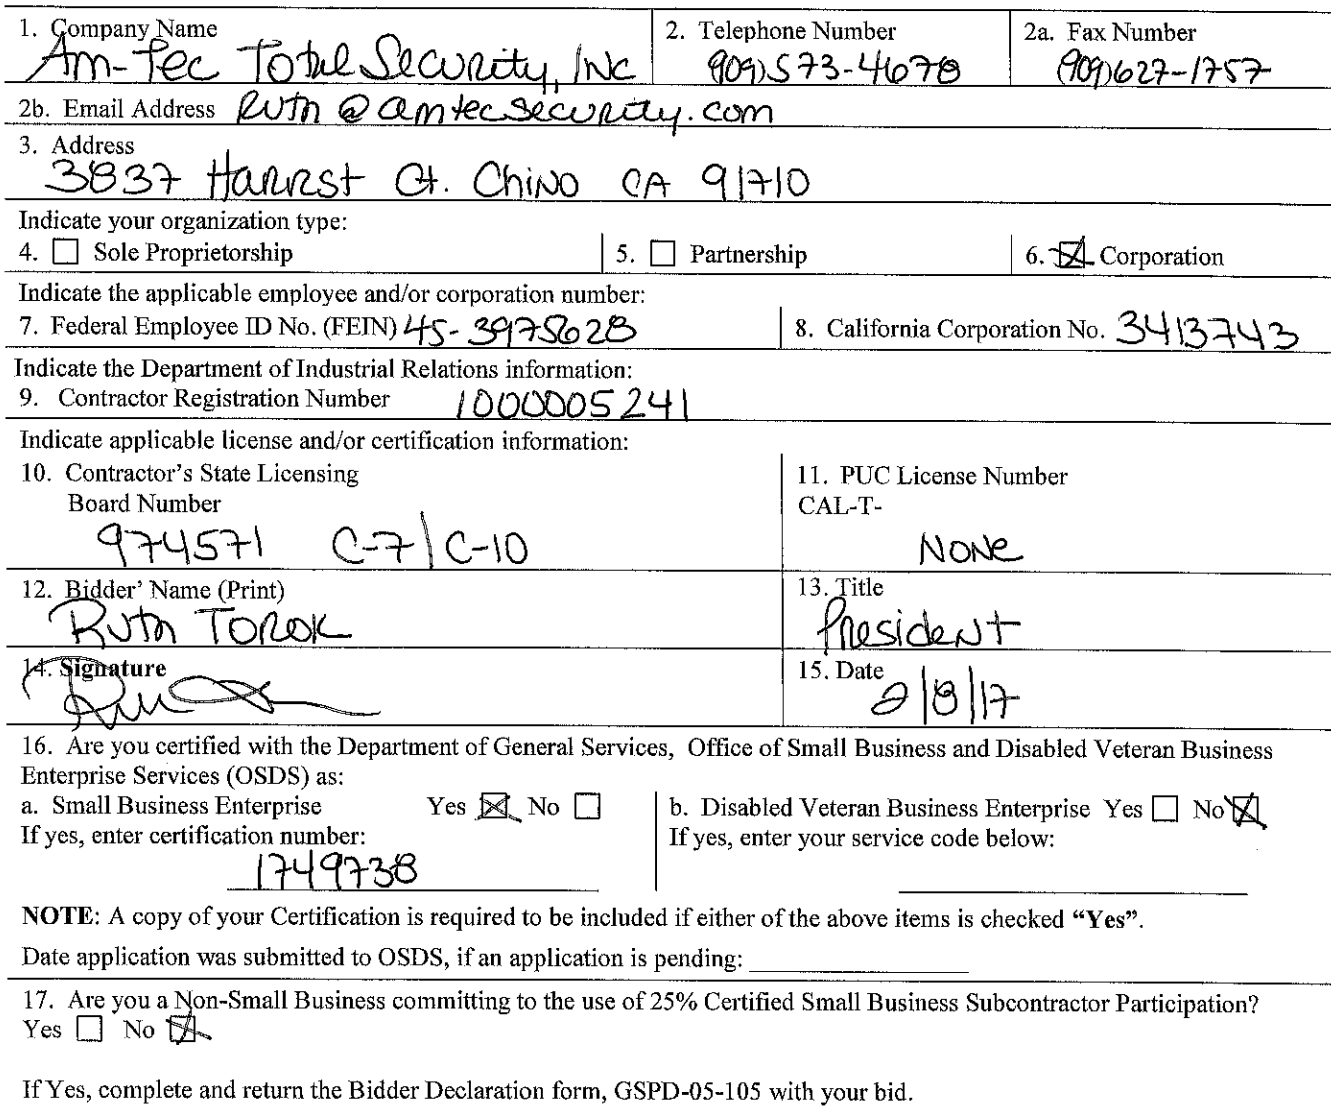 1. Company Name 2. Telephone Number 2a. Fax Number
Am-Tec Total Security, Inc 909)573-4678 (909)627-1757
2b. Email Address Ruth@amtecsecurity.com
3. Address
3837 Ct. Chino CA 91710
Indicate your organization type:
4. ☐ Sole Proprietorship 5. ☐ Partnership 6. ☒ Corporation
Indicate the applicable employee and/or corporation number:
7. Federal Employee ID No. (FEIN) 45-3975628 8. California Corporation No. 3413743
Indicate the Department of Industrial Relations information:
9. Contractor Registration Number 1000005241
Indicate applicable license and/or certification information:
10. Contractor's State Licensing 11. PUC License Number
Board Number CAL-T-
974571 C-7/C-10 None
12. Bidder' Name (Print) 13. Title
Ruth Torok President
14. Signature 15. Date
2/8/17
16. Are you certified with the Department of General Services, Office of Small Business and Disabled Veteran Business
Enterprise Services (OSDS) as:
a. Small Business Enterprise Yes ☒ No ☐ b. Disabled Veteran Business Enterprise Yes ☐ No ☒
If yes, enter certification number: If yes, enter your service code below:
1749738
NOTE: A copy of your Certification is required to be included if either of the above items is checked “Yes”.
Date application was submitted to OSDS, if an application is pending:
17. Are you a Non-Small Business committing to the use of 25% Certified Small Business Subcontractor Participation?
Yes ☐ No ☒
If Yes, complete and return the Bidder Declaration form, GSPD-05-105 with your bid.